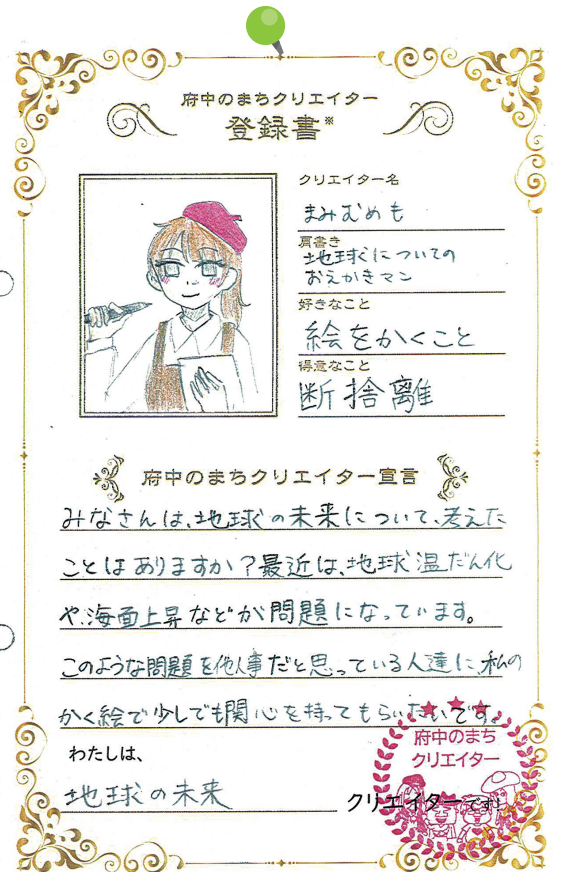 府中のまちクリエイター
登録書※
クリエイター名
まみむめも
肩書き
地球についての
おえかきマン
好きなこと
絵をかくこと
得意なこと
断捨離
府中のまちクリエイター宣言
みなさんは、地球の未来について、考えた
ことはありますか？最近は、地球温だん化
や、海面上昇などが問題になっています。
このような問題を他人事だと思っている人達に、私の
かく絵で少しでも関心を持ってもらいたいです。
府中のまち
クリエイター
わたしは、
地球の未来
クリエイターです!